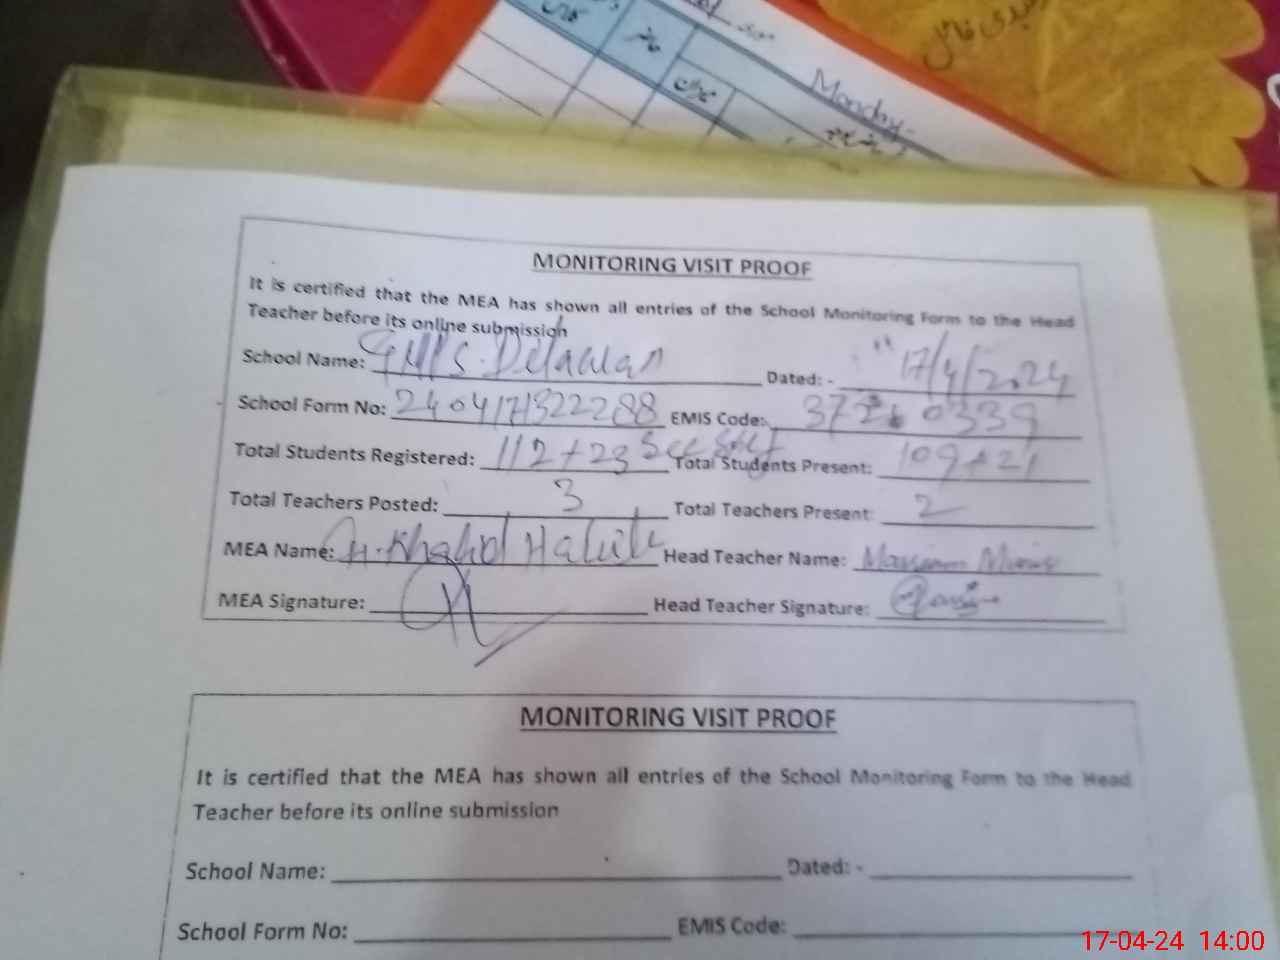 کلاس
حاضر
Monday
MONITORING VISIT PROOF
It is certified that the MEA has shown all entries of the School Monitoring Form to the Head
Teacher before its online submission
School Name: Dated: - 17/4/2024
School Form No: 2404171322288 EMIS Code: 0339
Total Students Registered: 112+23 Total Students Present: 109+21
Total Teachers Posted: 3 Total Teachers Present: 2
MEA Name: Khalid Head Teacher Name:
MEA Signature: Head Teacher Signature:
MONITORING VISIT PROOF
It is certified that the MEA has shown all entries of the School Monitoring Form to the Head
Teacher before its online submission
School Name: Dated: -
School Form No: EMIS Code:
17-04-24 14:00